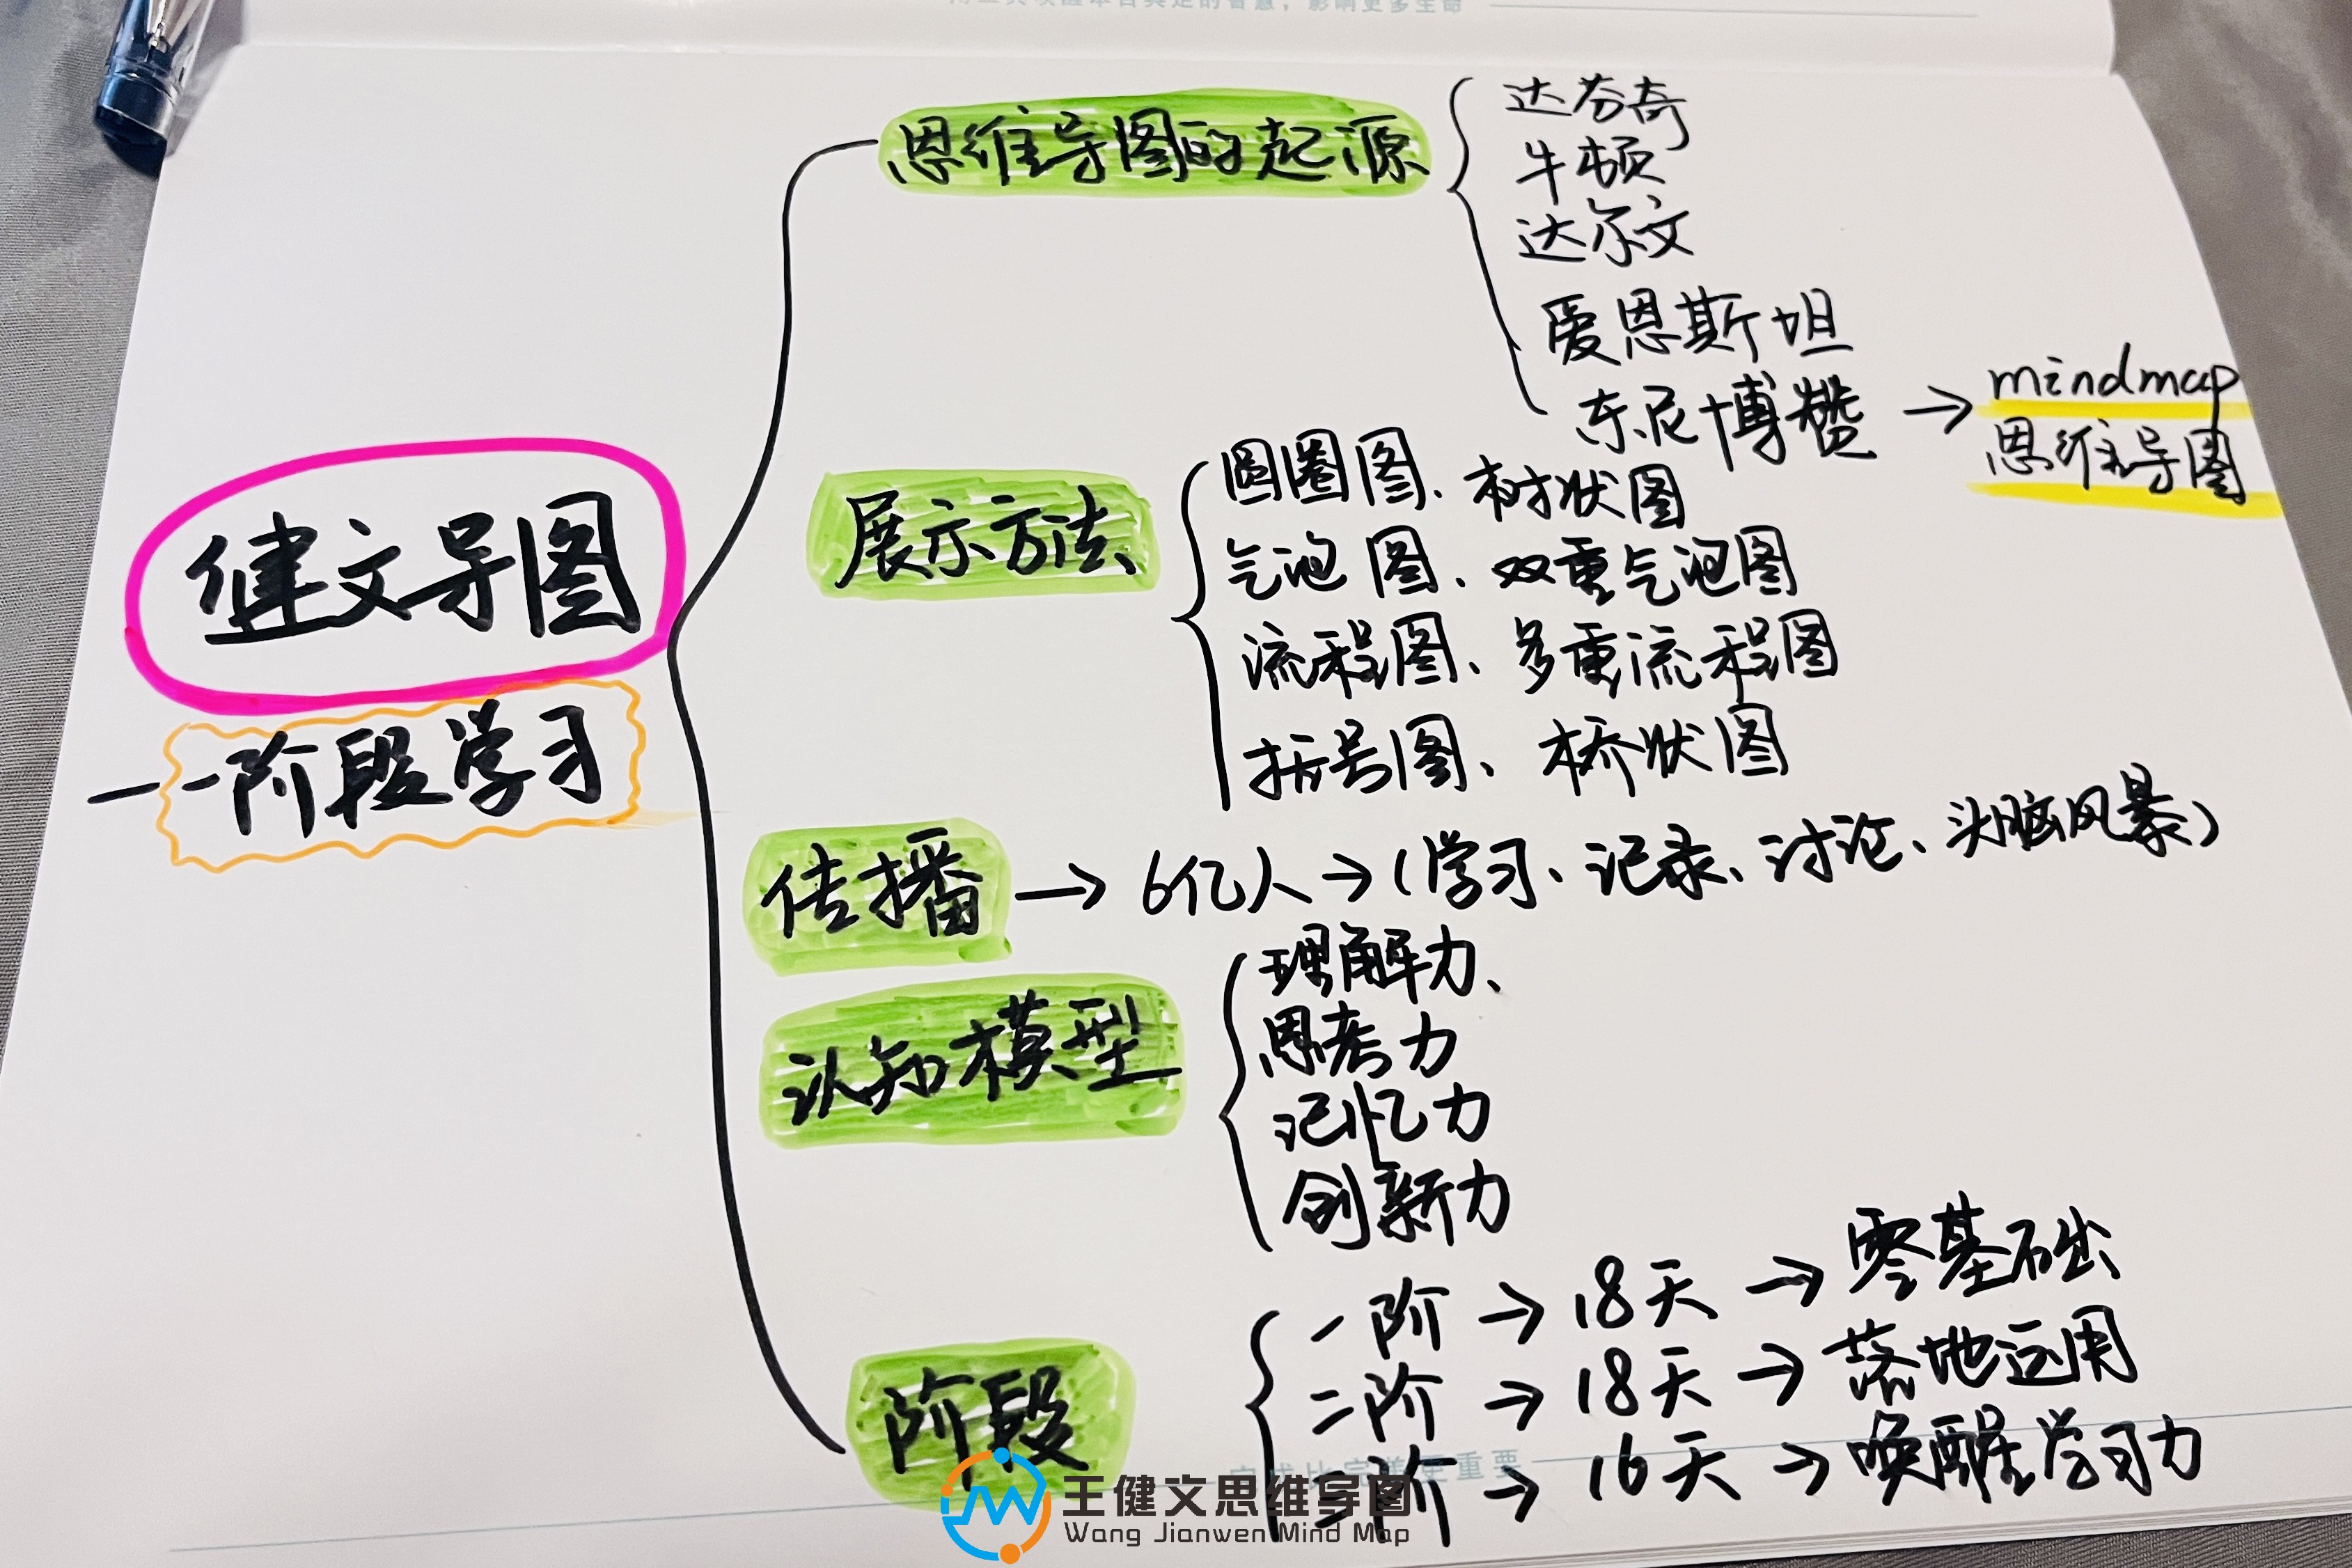 影响更多生命
思维导图的起源
达芬奇
牛顿
达尔文
爱恩斯坦
东尼博赞 → mindmap
思维导图
健文导图
一阶段学习
展示方法
圆圈图、树状图
气泡图、双重气泡图
流程图、多重流程图
括号图、桥状图
传播 → 6亿人 → (学习、记录、讨论、头脑风暴)
认知模型
理解力、
思考力
记忆力
创新力
阶段
一阶 → 18天 → 零基础
二阶 → 18天 → 落地运用
阶 → 16天 → 唤醒学习力
完成比完美更重要
王健文思维导图
Wang Jianwen Mind Map